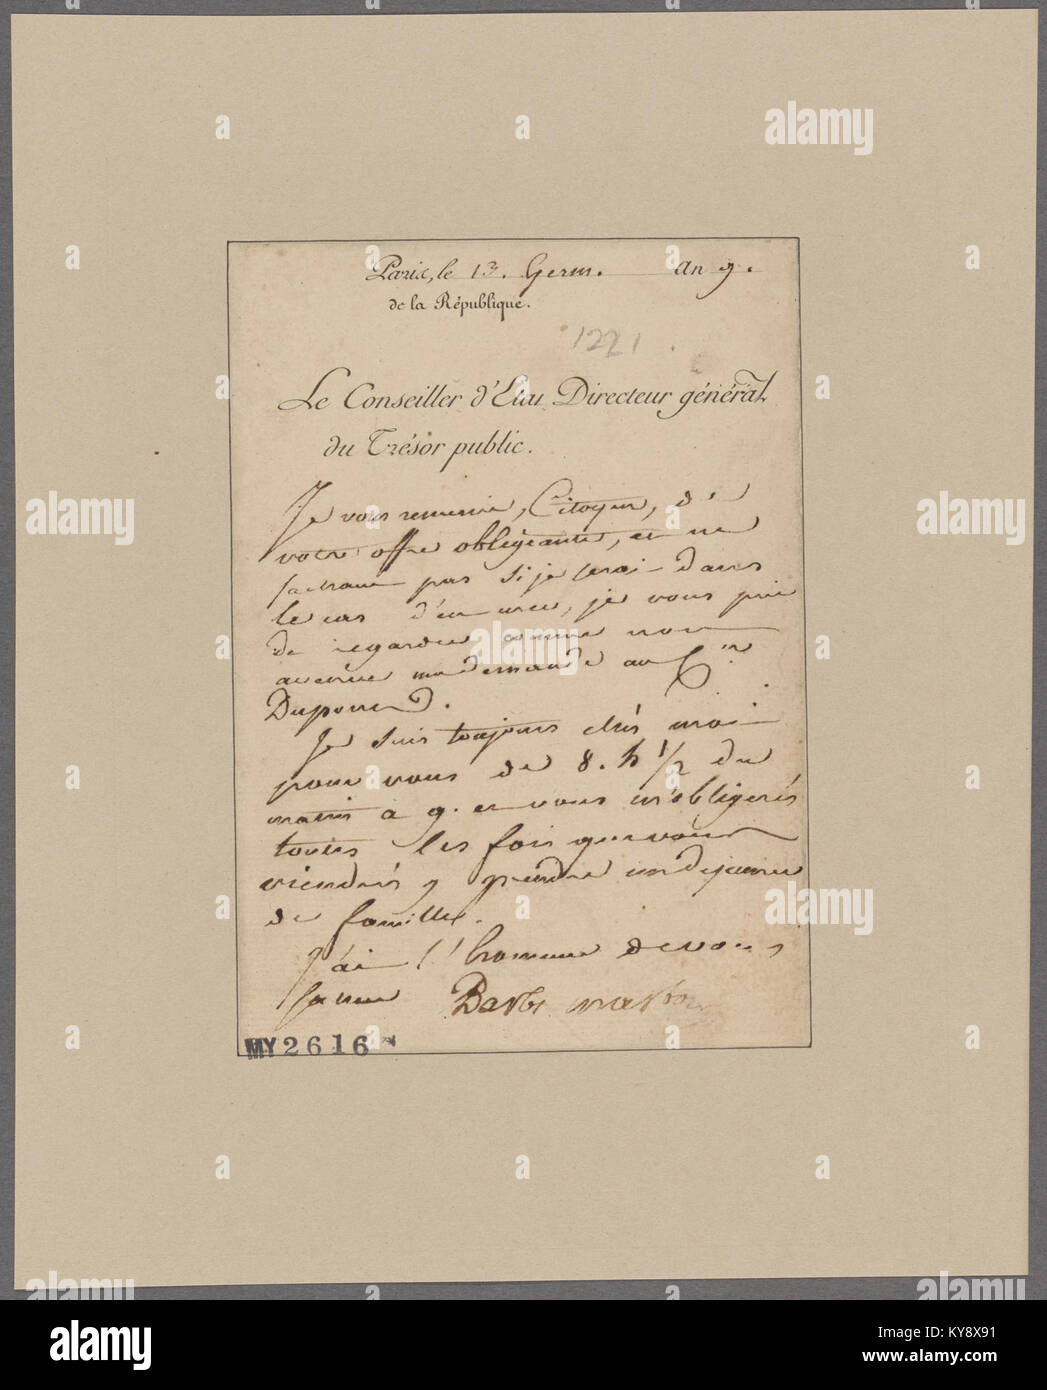 Paris, le 13. Germ. an 9.
de la République.
1221
Le Conseiller d'Etat Directeur général
du Trésor public.
Je vous remercie, Citoyen, de
votre offre obligeante, et ne
sachant pas si je serai dans
le cas d'en user, je vous prie
de regarder comme non
avenue ma demande au Cen
Dupont.
Je suis toujours chés moi
pour vous de 8. h 1/2 du
matin à 9. et vous m'obligerés
toutes les fois que vous
viendrés y prendre un dejeuner
de famille.
J'ai l'honneur de vous
saluer Barbé marbois
MY 2616
alamy
alamy
alamy
alamy
alamy
alamy
alamy
alamy
Image ID: KY8X91
www.alamy.com